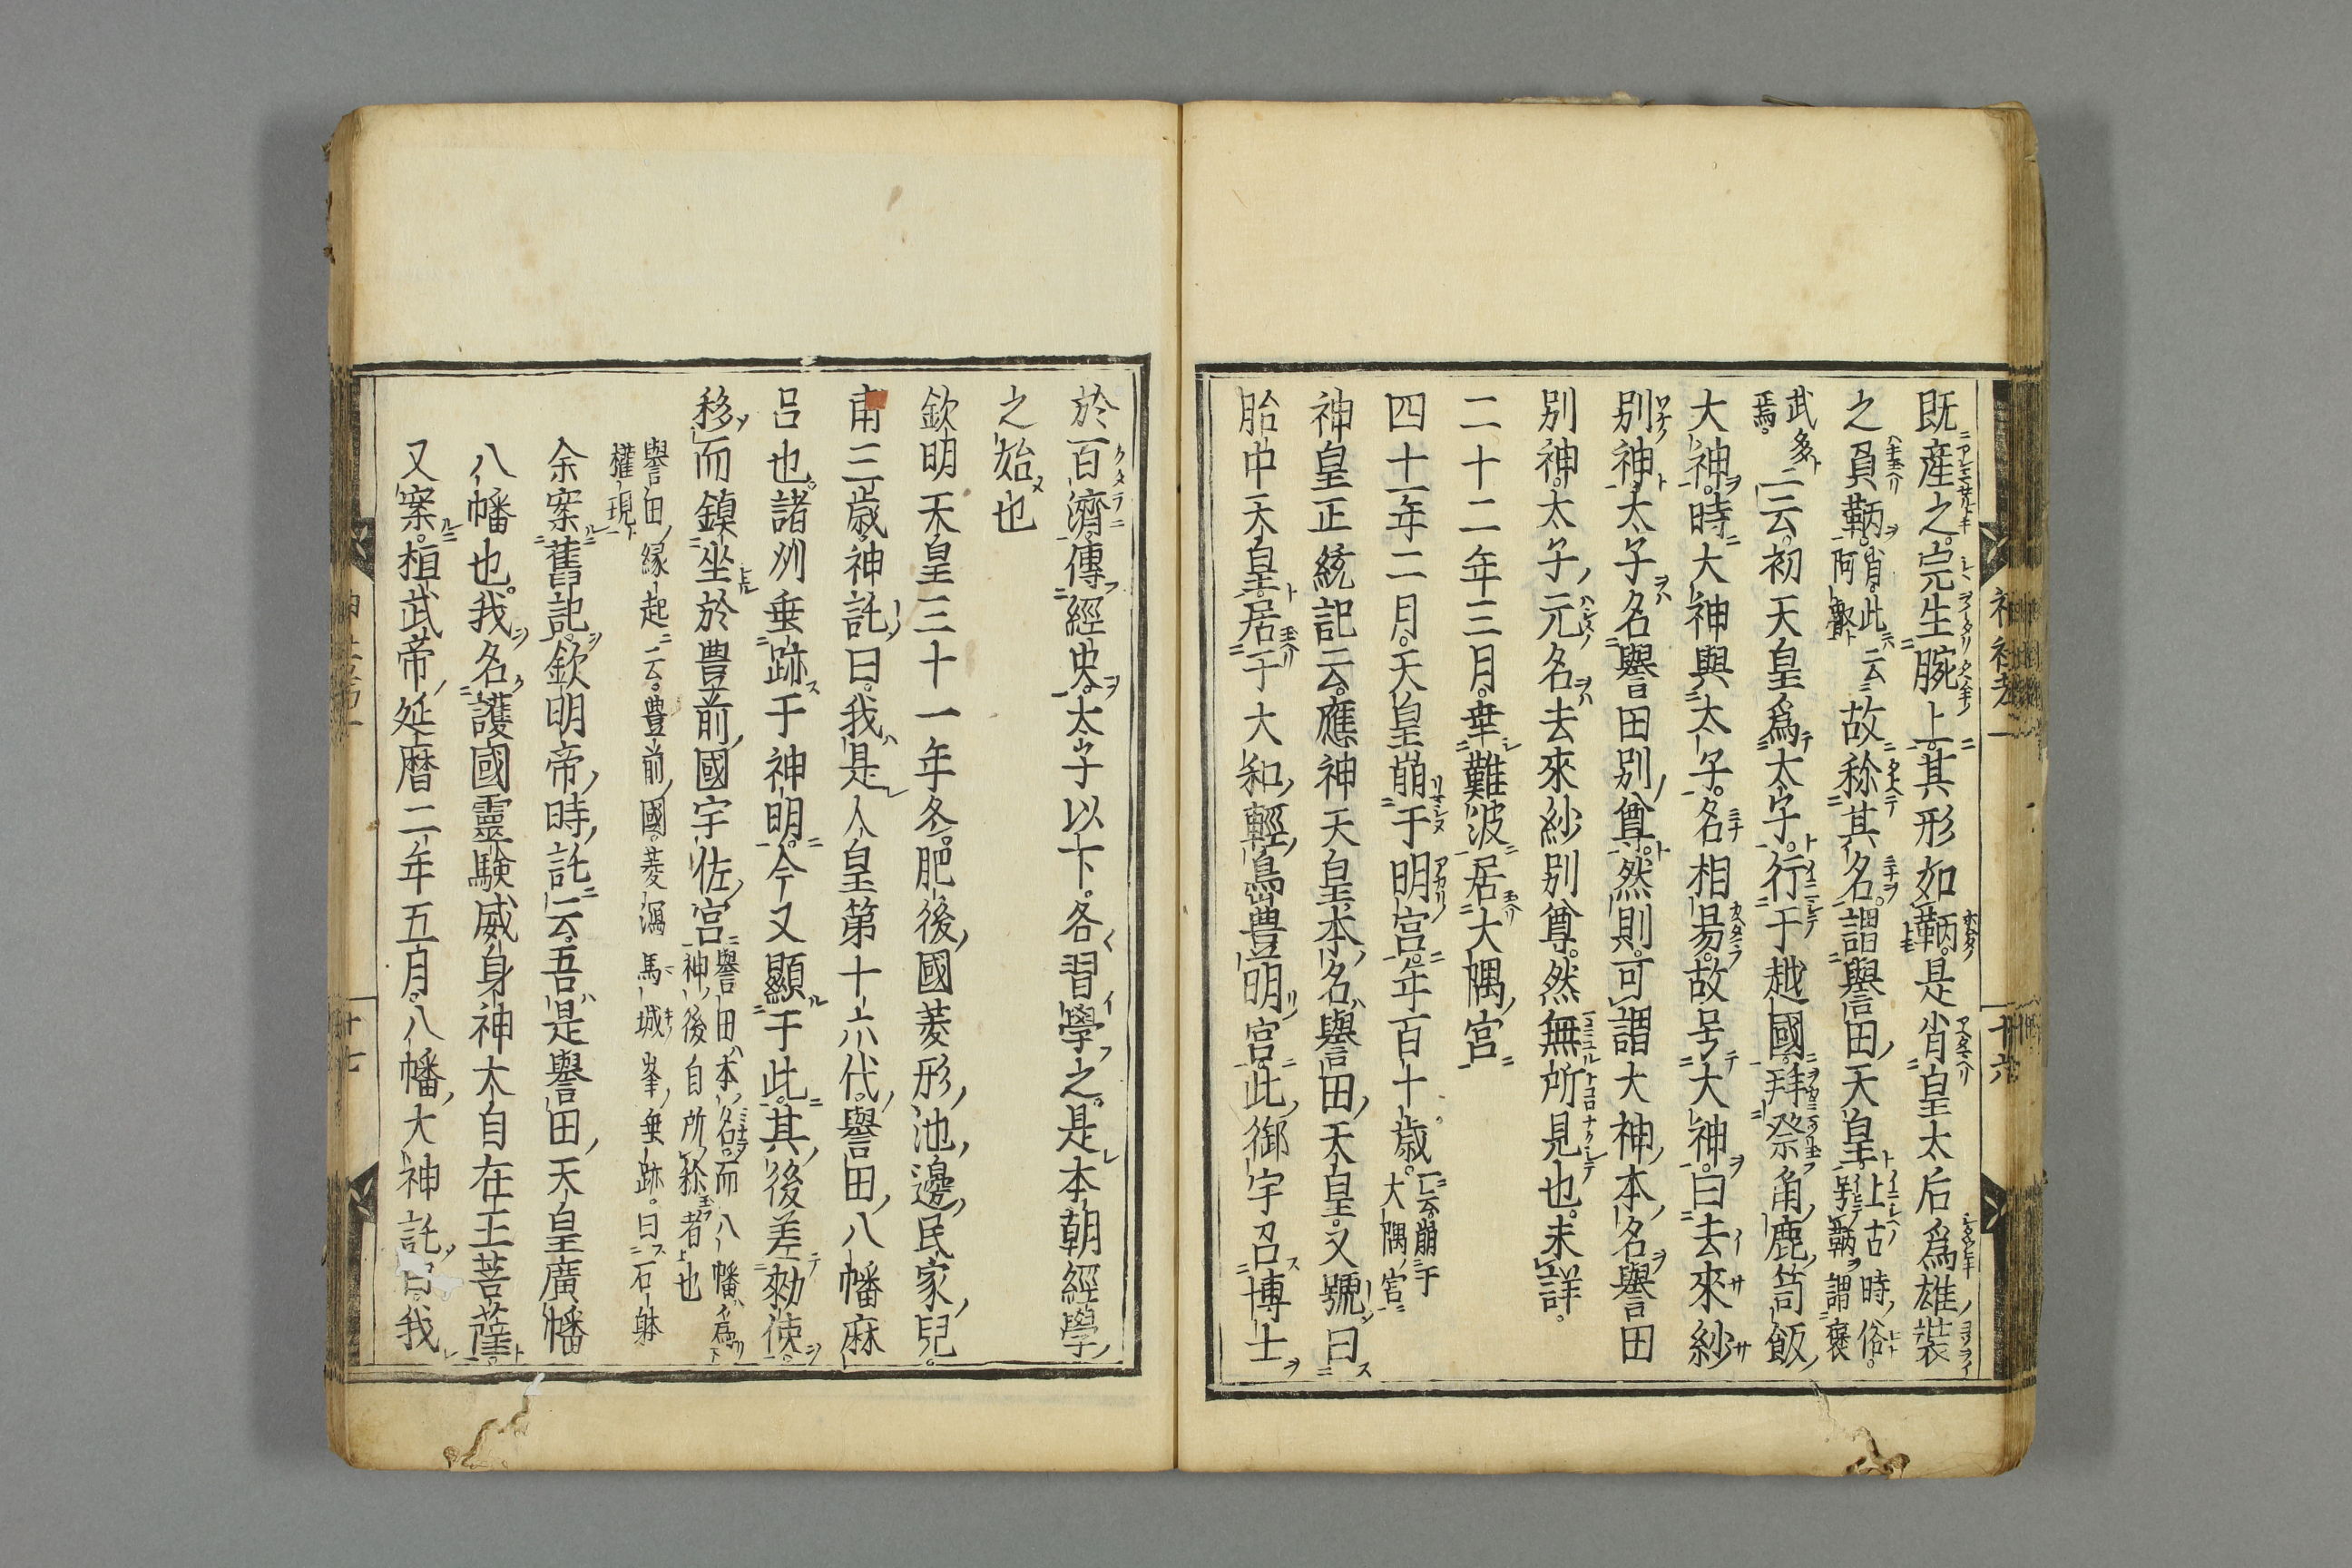 既産之。宍生腕上。其形如鞆。是肖皇太后爲雄裝
之負鞆。肖。此云阿叡。故称其名。謂譽田天皇。上古時俗。号鞆謂褒
武多焉。一云。初天皇爲太子。行于越國。拜祭角鹿笥飯
大神。時大神與太子。名相易。故号大神。曰去來紗
別神。太子名譽田別尊。然則可謂大神本名譽田
別神。太子元名去來紗別尊。然無所見也。未詳。
二十二年三月。幸難波。居大隅宮
四十一年二月。天皇崩于明宮。年百十歳。一云。崩于大隅宮
神皇正統記云。應神天皇。本名譽田天皇。又號曰
胎中天皇。居于大和輕嶌豊明宮。此御宇召博士
於百濟。傳經史。太子以下。各習學之。是本朝經學
之始也
欽明天皇三十一年冬。肥後國菱形池邊民家兒。
甫三歳。神託曰。我是人皇第十六代。譽田八幡麻
呂也。諸州垂跡于神明。今又顯于此。其後差勅使。
移而鎮坐於豊前國宇佐宮 譽田本名。而八幡爲神後自所称者也
譽田縁起云。豊前國。菱瀉馬城峯垂跡。曰石躰
權現
余案舊記。欽明帝時。託云。吾是譽田天皇廣幡
八幡也。我名護國靈験威身神大自在王菩薩。
又案。桓武帝延暦二年五月。八幡大神託宣。我
神社考二
十六
十七